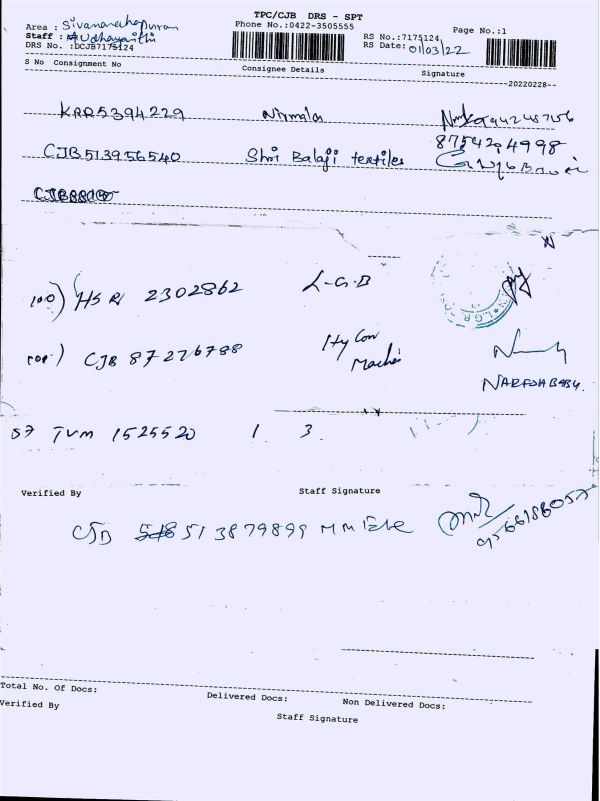 TPC/CJB DRS - SPT
Area : Sivanandhapuram Phone No.:0422-3505555 Page No.:1
Staff : Udhayanithi RS No.:7175124
DRS No. :DCJB7175124 RS Date: 01/03/22
S No Consignment No Consignee Details Signature
--20220228--
KRR5394229 Nirmala
8754294998
CJB513956540 Shri Balaji textiles
100) HSR 2302862 L-G.B
CJB 87276788 Hycon
NARESH BABU.
57 TVM 1525520 1 3
Verified By Staff Signature
CJB 513879899 M M
9566186057
Total No. Of Docs: Delivered Docs: Non Delivered Docs:
Verified By Staff Signature